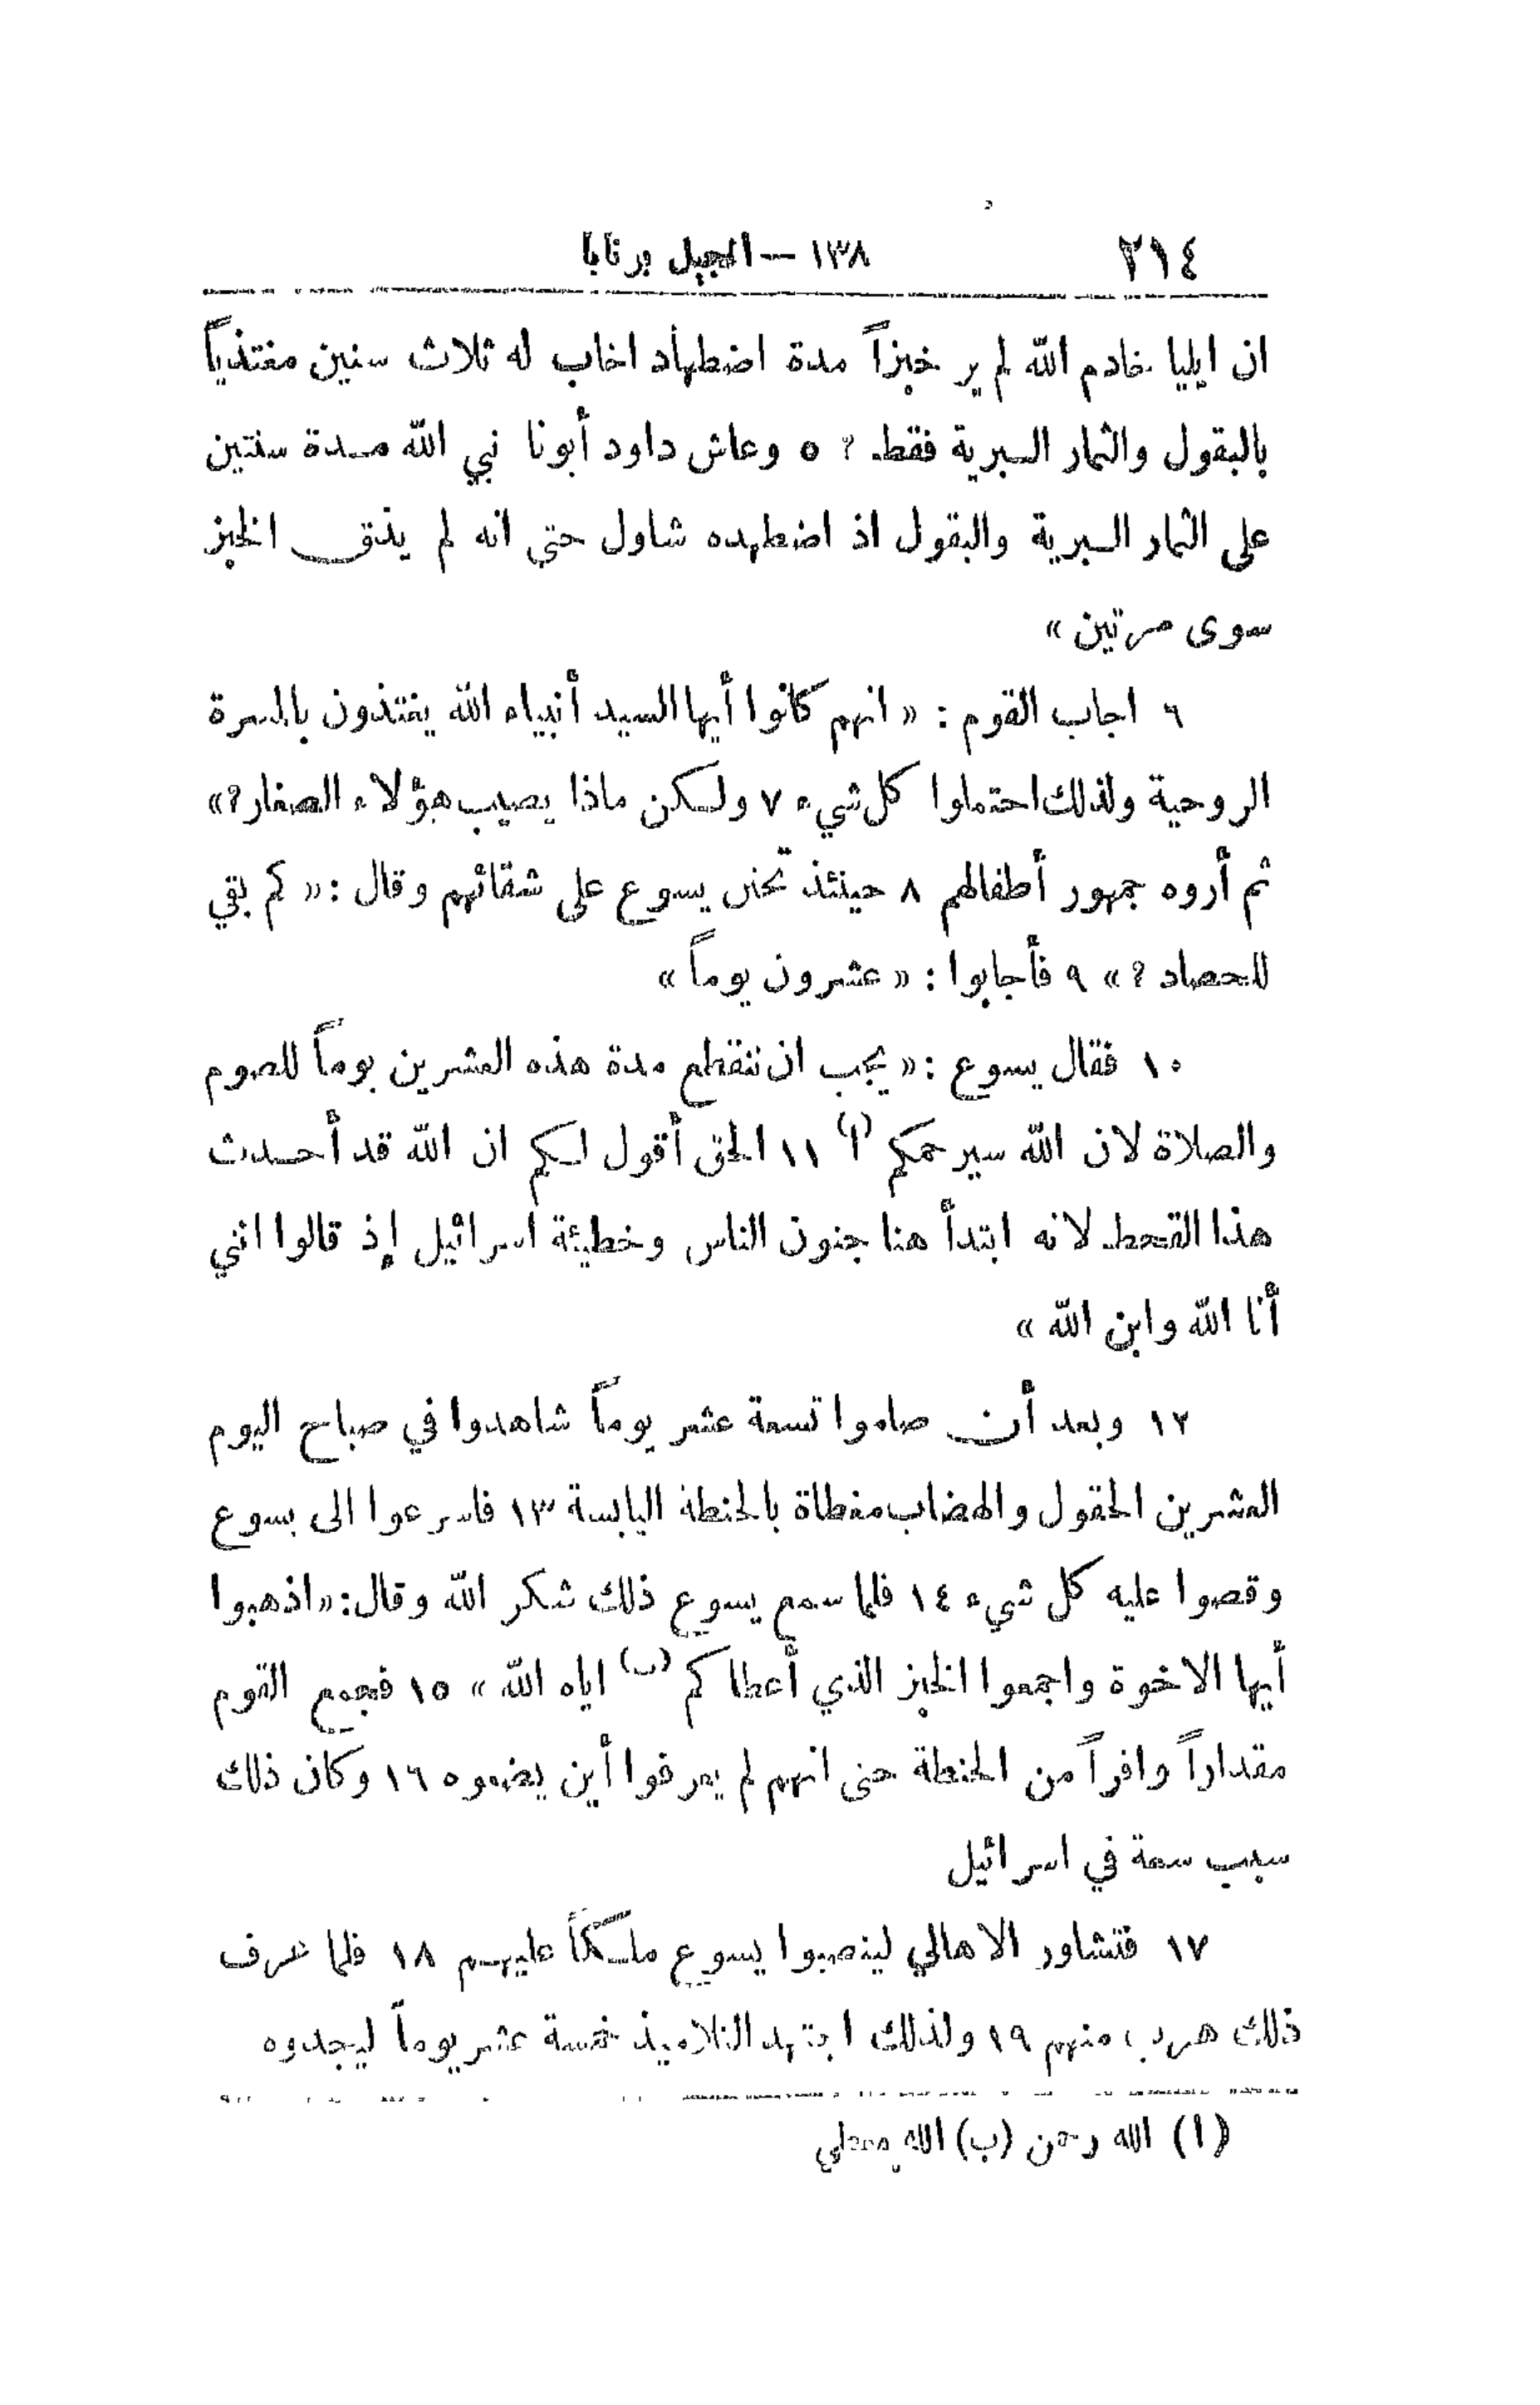 ٢١٤
١٣٨ — انجيل برنابا
ان ايليا خادم الله لم ير خبزاً مدة اضطهاد اخاب له ثلاث سنين مغتذياً
بالبقول والثمار البرية فقط ؟ ٥ وعاش داود أبونا نبي الله مدة سنتين
على الثمار البرية والبقول اذ اضطهده شاول حتى انه لم يذق الخبز
سوى مرتين »
٦ اجاب القوم : « انهم كانوا أيها السيد أنبياء الله يغتذون بالمسرة
الروحية ولذلك احتملوا كل شيء ٧ ولكن ماذا يصيب هؤلاء الصغار ؟ »
ثم أروه جمهور أطفالهم ٨ حينئذ تحنن يسوع على شقائهم وقال : « كم بقي
للحصاد ؟ » ٩ فأجابوا : « عشرون يوماً »
١٠ فقال يسوع : « يجب ان ننقطع مدة هذه العشرين يوماً للصوم
والصلاة لان الله سيرحمكم (ا) ١١ الحق أقول لكم ان الله قد أحدث
هذا القحط لانه ابتدأ هنا جنون الناس وخطيئة اسرائيل إذ قالوا انني
أنا الله وابن الله »
١٢ وبعد أن صاموا تسعة عشر يوماً شاهدوا في صباح اليوم
العشرين الحقول والهضاب مغطاة بالحنطة اليابسة ١٣ فاسرعوا الى يسوع
وقصوا عليه كل شيء ١٤ فلما سمع يسوع ذلك شكر الله وقال : « اذهبوا
أيها الاخوة واجمعوا الخبز الذي أعطاكم (ب) اياه الله » ١٥ فجمع القوم
مقداراً وافراً من الحنطة حتى انهم لم يعرفوا أين يضعوه ١٦ وكان ذلك
سبب سعة في اسرائيل
١٧ فتشاور الاهالي لينصبوا يسوع ملكاً عليهم ١٨ فلما عرف
ذلك هرب منهم ١٩ ولذلك اجتهد التلاميذ خمسة عشر يوماً ليجدوه
(ا) الله رحمن (ب) الله معطي